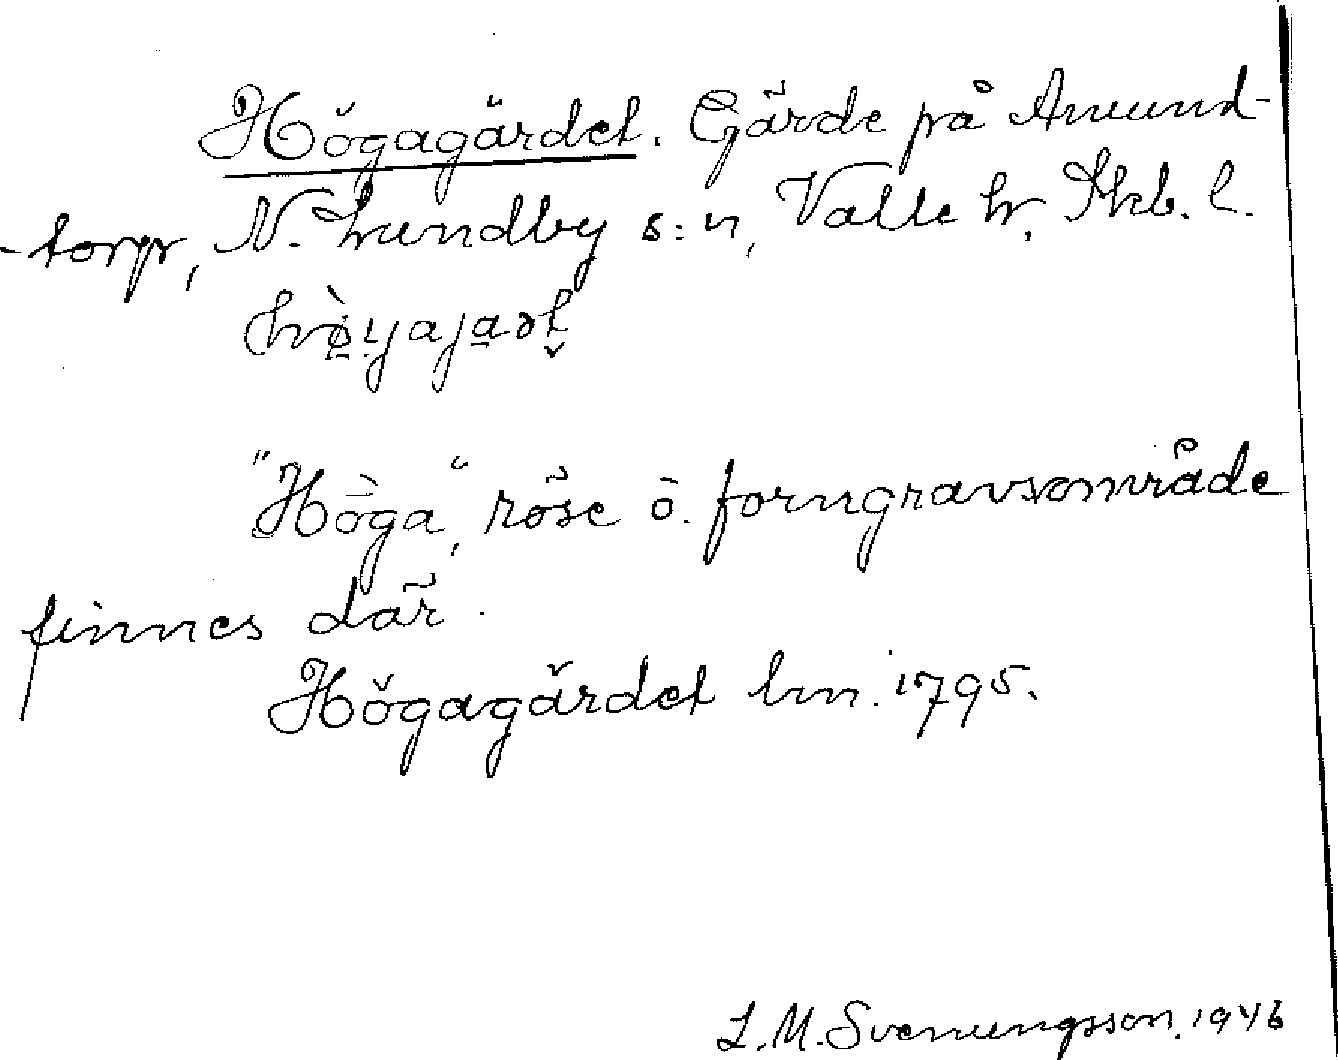 Högagärdet. Gärde på Amund-
-torp, N. Lundby s:n, Valle hr, Skb. l.
"Höga", röse o. forngravsområde
finnes där.
Högagärdet hm. 1795.
L.M. Svenungsson. 1946